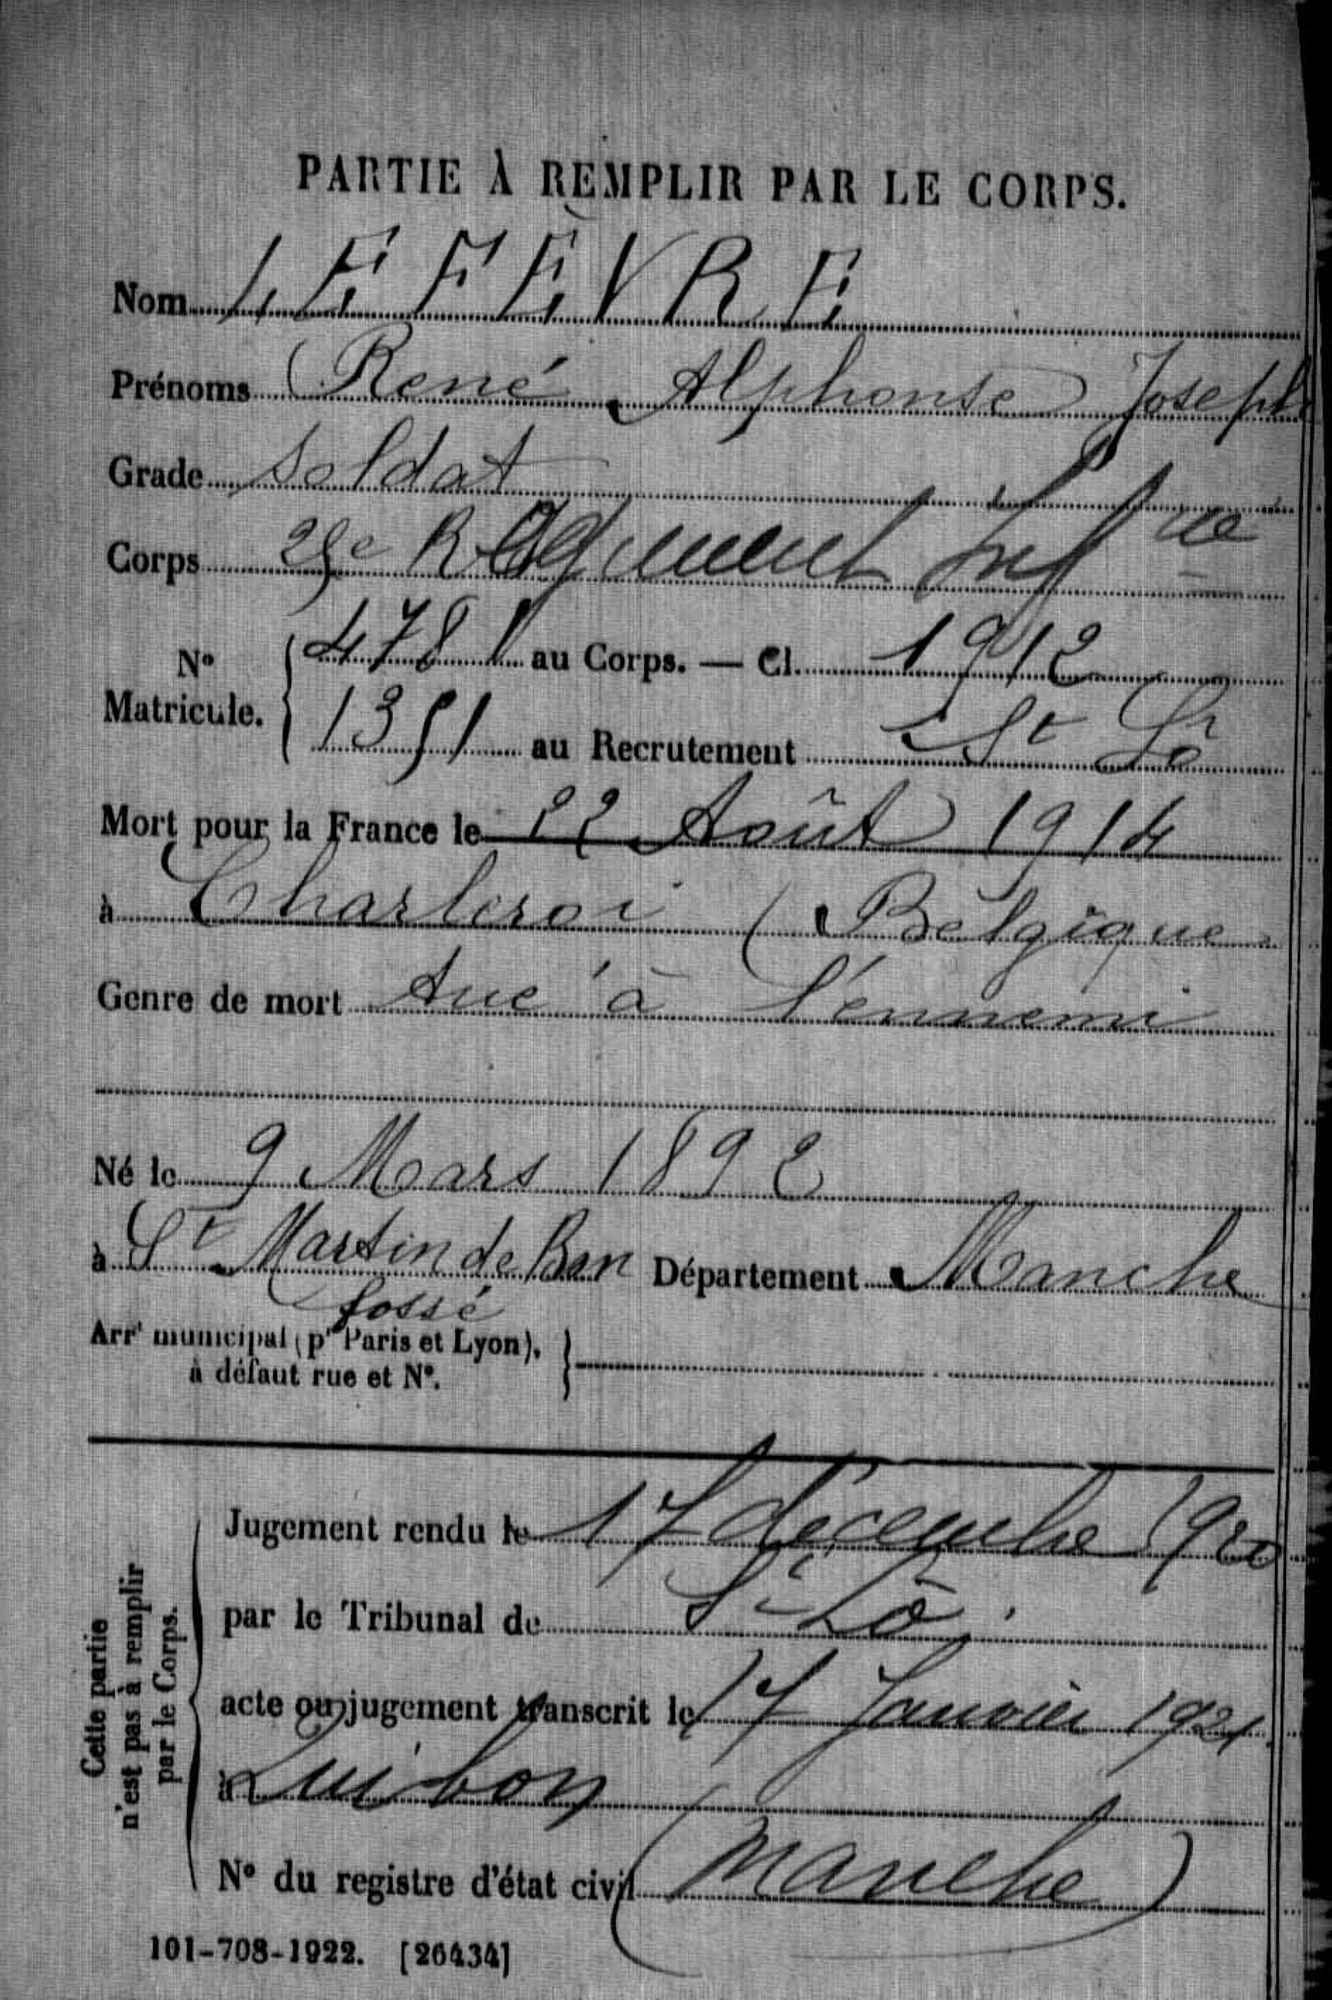 PARTIE À REMPLIR PAR LE CORPS.
Nom LEFÈVRE
Prénoms René Alphonse Joseph
Grade Soldat
Corps Régiment Inf rie
N° Matricule. 4781 au Corps. — Cl. 1912
1351 au Recrutement St Lô
Mort pour la France le 22 Août 1914
à Charleroi (Belgique
Genre de mort tué à l'ennemi
Né le 9 Mars 1892
à St Martin de Bon Département Manche
fossé
Arrt municipal (pr Paris et Lyon),
à défaut rue et N°.
Cette partie
n'est pas à remplir
par le Corps.
Jugement rendu le 17 décembre 1920
par le Tribunal de St Lô
acte ou jugement transcrit le 17 Janvier 1921
à Quibou
(Manche)
N° du registre d'état civil
101-708-1922. [26434]